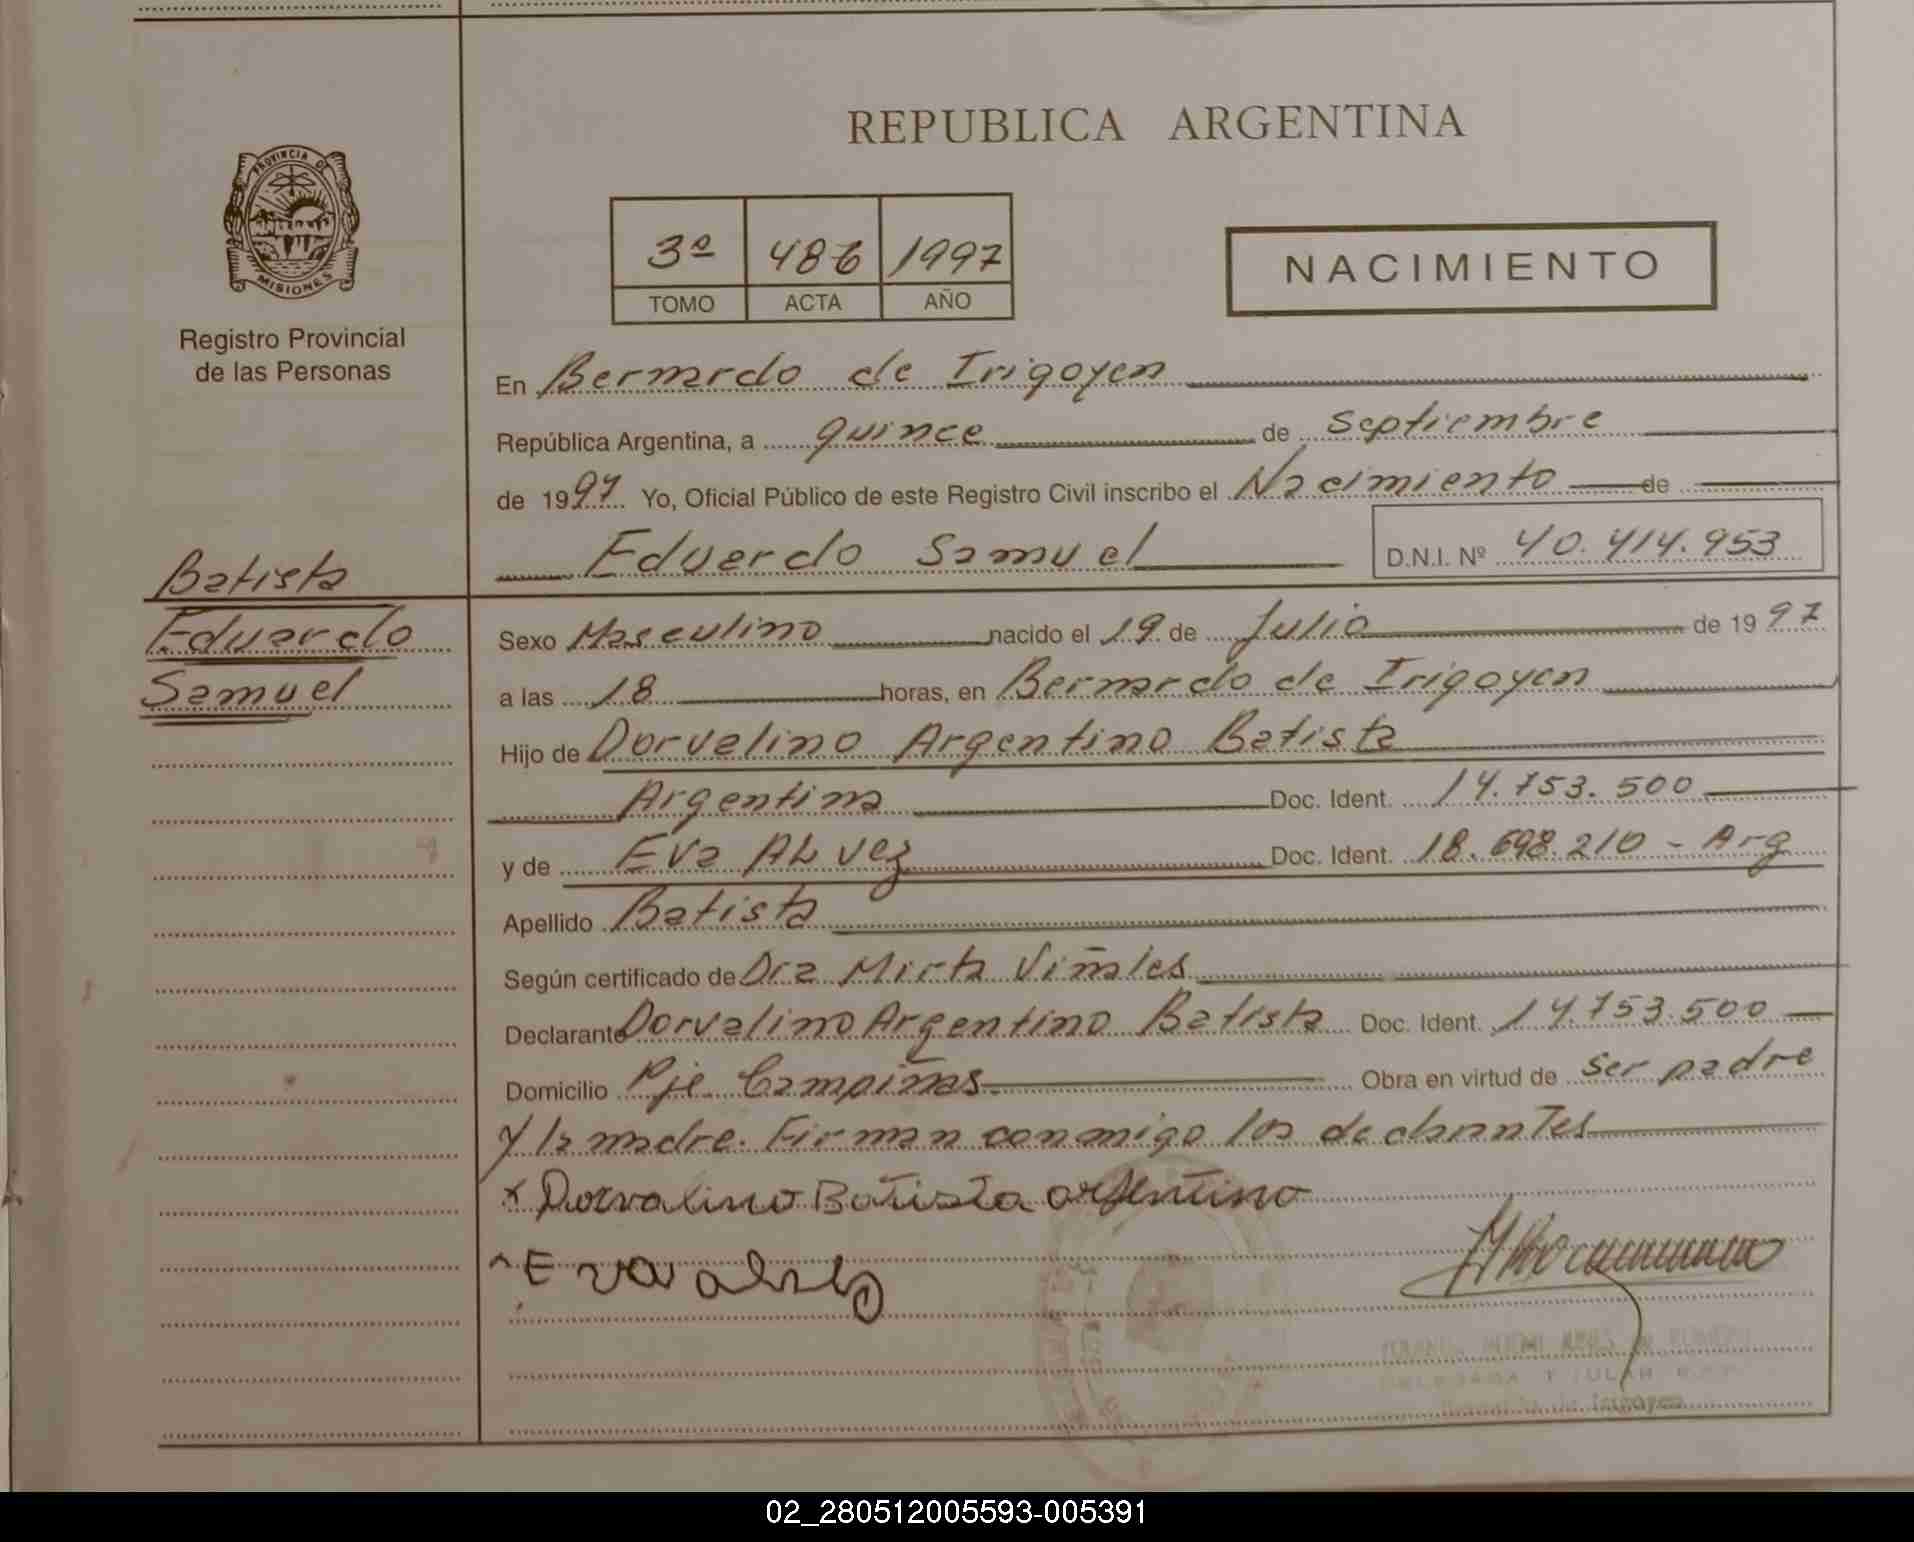 REPUBLICA ARGENTINA
PROVINCIA DE
MISIONES
Registro Provincial
de las Personas
3º 486 1997
TOMO ACTA AÑO
NACIMIENTO
En Bernardo de Irigoyen
República Argentina, a quince de Septiembre
de 1997 Yo, Oficial Público de este Registro Civil inscribo el Nacimiento de
Eduardo Samuel D.N.I. Nº 40.414.953
Batista
Eduardo
Samuel
Sexo Masculino nacido el 19 de Julio de 1997
a las 18 horas, en Bernardo de Irigoyen
Hijo de Dorvalino Argentino Batista
Argentina Doc. Ident. 14.753.500
y de Eva ALvez Doc. Ident. 18.698.210 - Arg
Apellido Batista
Según certificado de Dra Mirta Viñales
Declarante Dorvalino Argentino Batista Doc. Ident. 14.753.500
Domicilio Pje Campiñas Obra en virtud de ser padre
y la madre. Firman conmigo los declarantes
x Dorvalino Batista argentino
Eva alvez
02_280512005593-005391